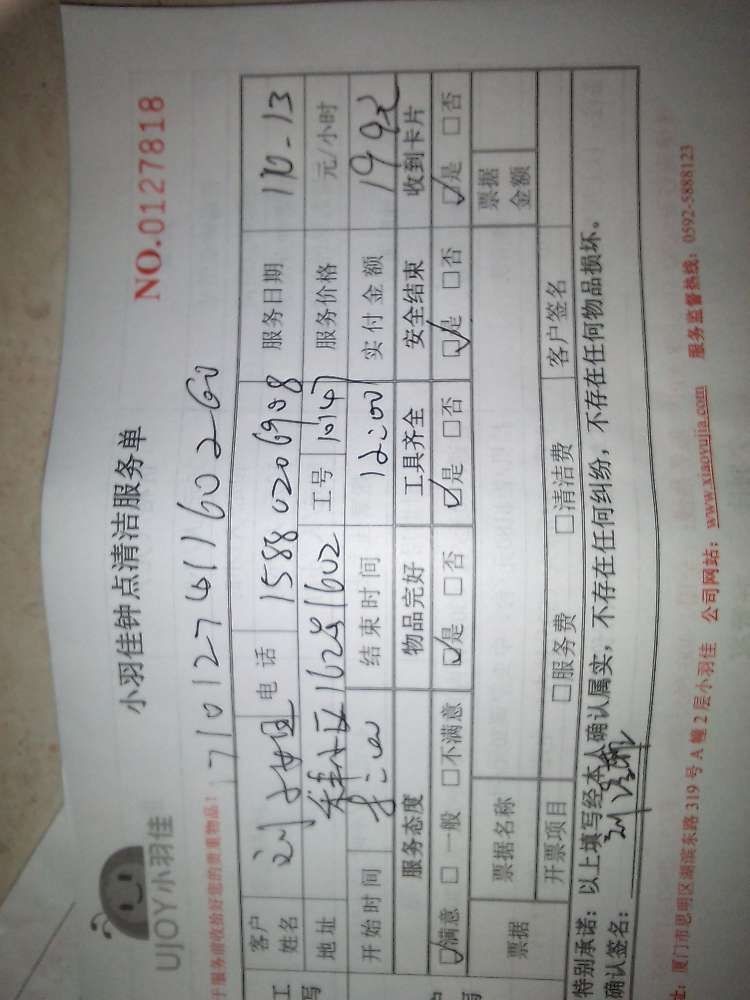 UJOY小羽佳
小羽佳钟点清洁服务单
NO.0127818
服务前收拾好您的贵重物品！
客户姓名 电话 15880206908 服务日期 10.13
地址 工号 服务价格 元/小时
开始时间 结束时间 12:00 实付金额
服务态度 物品完好 工具齐全 安全结束 收到卡片
☑满意 □一般 □不满意 ☑是 □否 ☑是 □否 ☑是 □否 ☑是 □否
票据 票据名称 票据金额
开票项目 □服务费 □清洁费 客户签名
特别承诺：以上填写经本人确认属实，不存在任何纠纷，不存在任何物品损坏。
确认签名：
厦门市思明区湖滨东路 319 号 A 幢 2 层小羽佳 公司网站：www.xiaoyujia.com 服务监督热线：0592-5888123